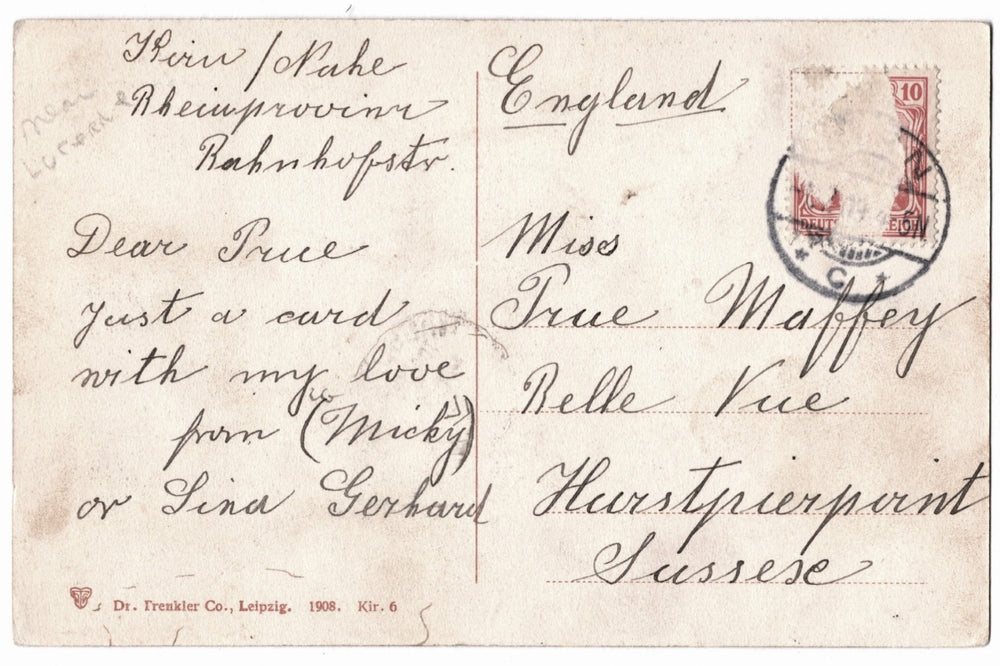 Kirn / Nahe
Rheinprovinz
Bahnhofstr.
near
Dear Prue
Just a card
with my love
from (Micky)
or Lina Gerhard
England
Miss
Prue Maffey
Belle Vue
Hurstpierpoint
Sussex
10
DEUT
* C *
Dr. Trenkler Co., Leipzig. 1908. Kir. 6